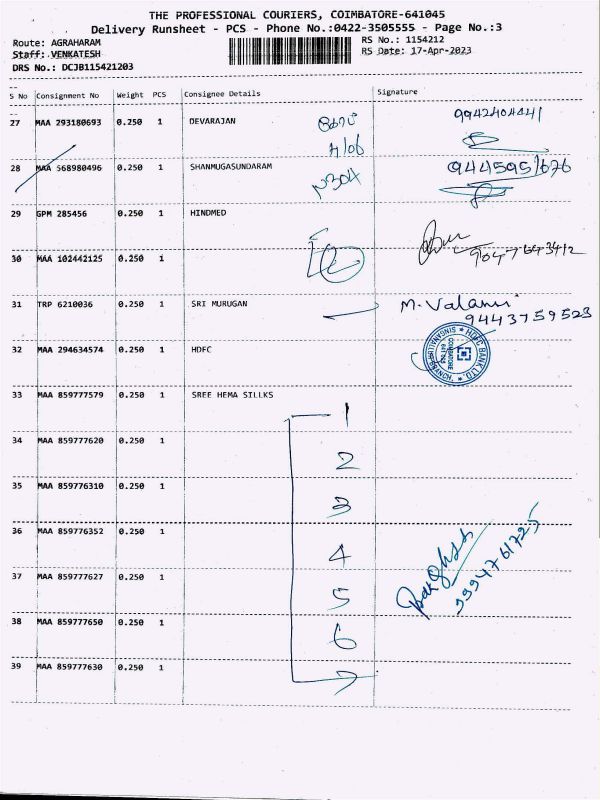 THE PROFESSIONAL COURIERS, COIMBATORE-641045
Delivery Runsheet - PCS - Phone No.:0422-3505555 - Page No.:3
Route: AGRAHARAM
RS No.: 1154212
Staff: VENKATESH
RS Date: 17-Apr-2023
DRS No.: DCJB115421203
S No Consignment No Weight PCS Consignee Details Signature
27 MAA 293180693 0.250 1 DEVARAJAN
28 MAA 568980496 0.250 1 SHANMUGASUNDARAM 9445951676
29 GPM 285456 0.250 1 HINDMED
30 MAA 102442125 0.250 1
31 TRP 6210036 0.250 1 SRI MURUGAN
9443759523
32 MAA 294634574 0.250 1 HDFC HDFC BANK LTD. COIMBATORE
33 MAA 859777579 0.250 1 SREE HEMA SILLKS 1
34 MAA 859777620 0.250 1 2
35 MAA 859776310 0.250 1 3
36 MAA 859776352 0.250 1 4
37 MAA 859777627 0.250 1 5
9994761725
38 MAA 859777650 0.250 1 6
39 MAA 859777630 0.250 1 7